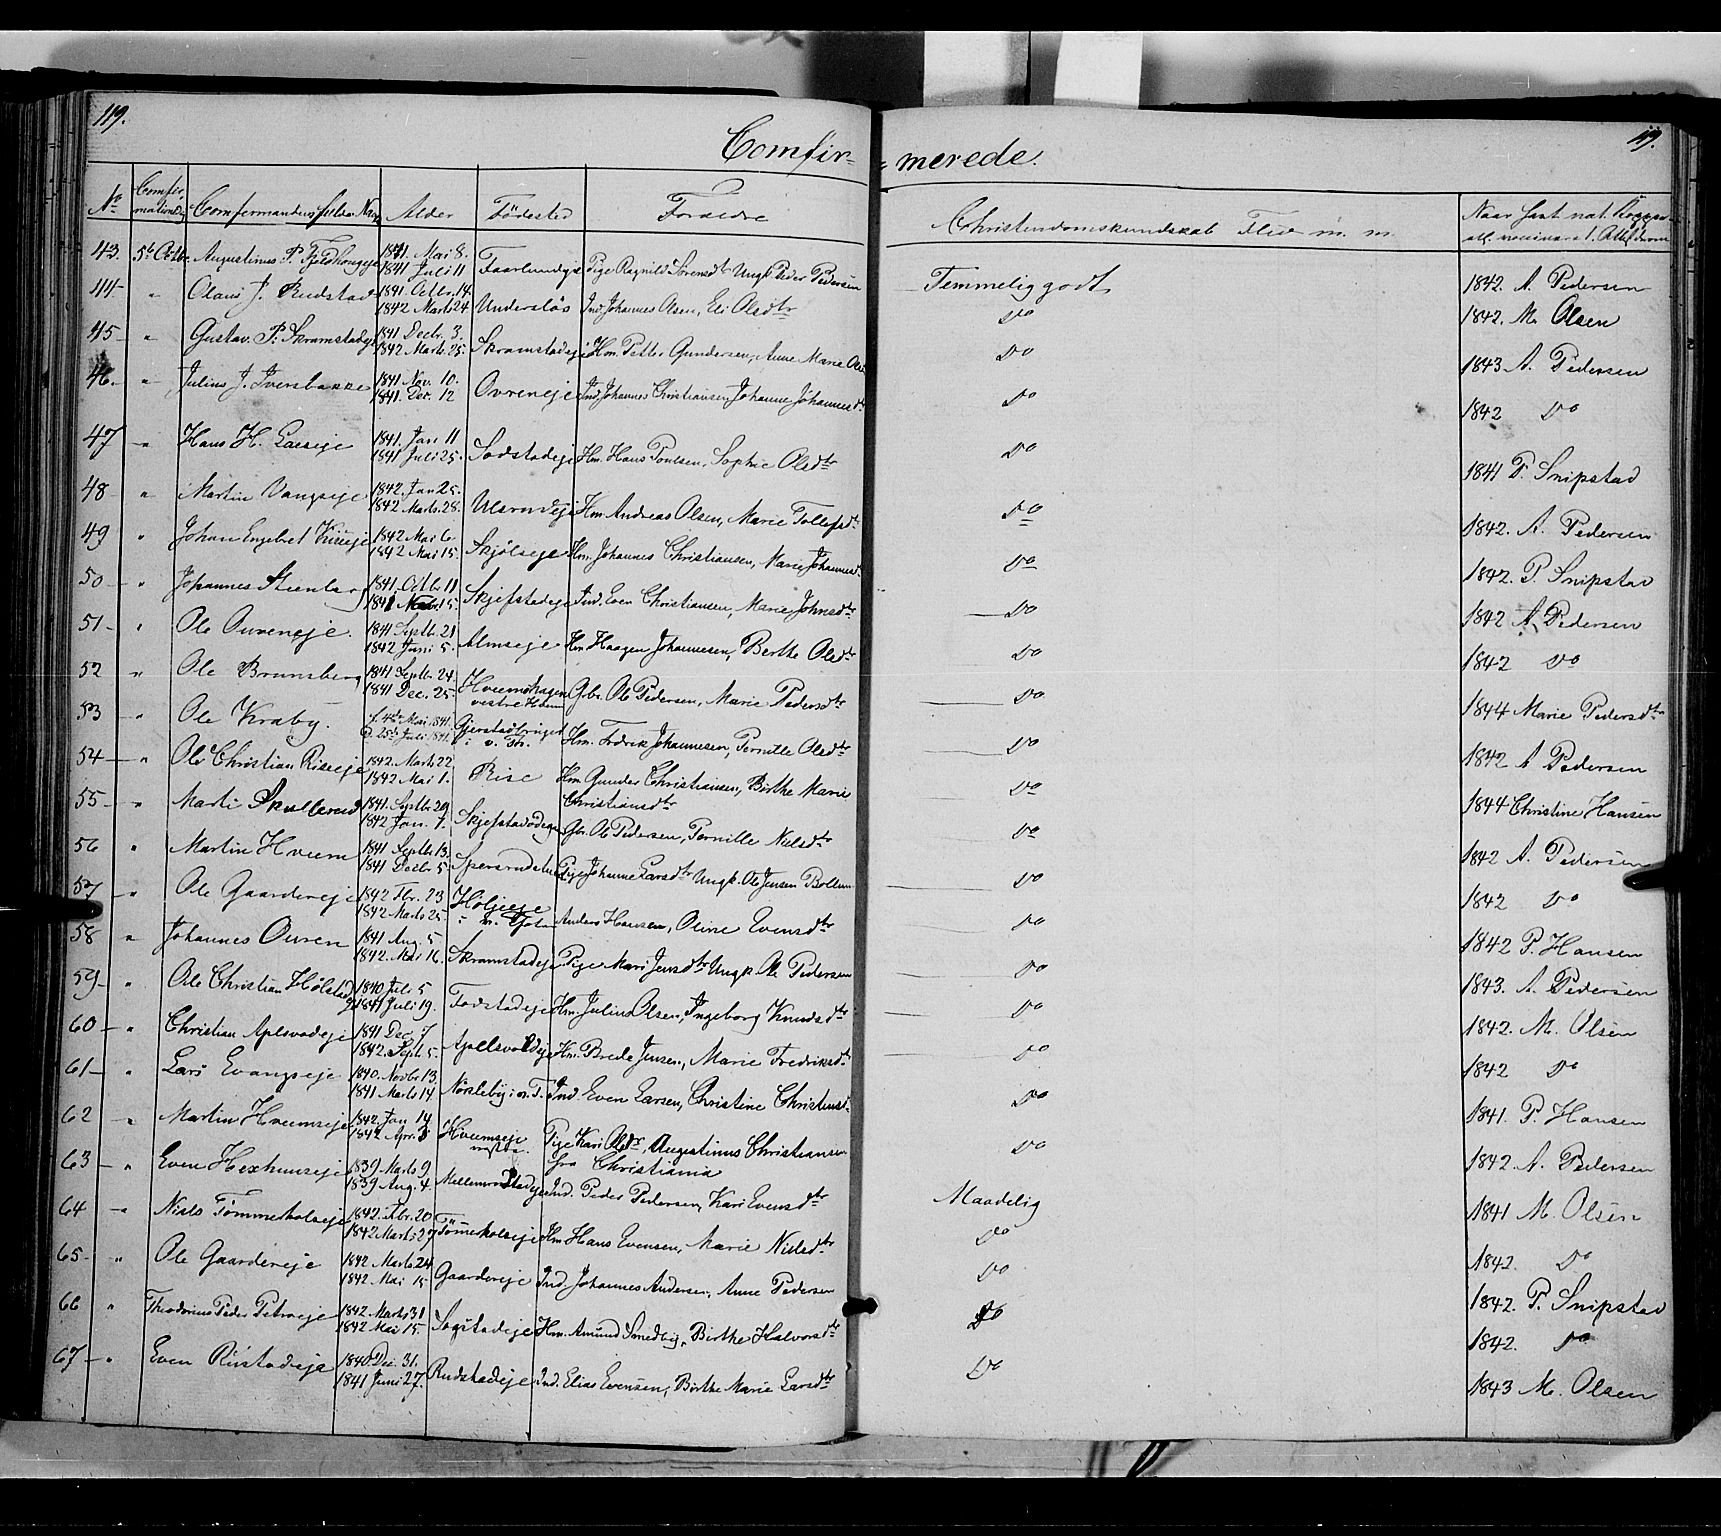 119.
119.
Comfir= =merede.
No Comfirmationsdag Alder Födested Forældre Christendomskundskab Flid m. m.
43. 5te Octbr. Augustinus P. 1841. Mai 8. 1841 Juli 11 Faarlundeje Pige Ragnild Sörensdtr Ungk Peder Pedersen Temmelig godt 1842. A. Pedersen
44. " Olaus J. Rudstad 1841 Octbr. 14. 1842 Marts 24 Undersløs Ind. Johannes Olsen, Eli Olsdtr Do 1842. M. Olsen
45 " Gustav. P. Skramstadeje 1841 Decbr. 3. 1842 Marts. 25. Skramstadeje Hm. Petter Gundersen, Anne Marie Olsd Do 1843 A. Pedersen
46. " Julius J. Iversbakke 1841 Nov. 10. 1841. Dec. 12 Ovreneje Ind. Johannes Christiansen Johanne Johannesdtr Do 1842 Do
47 " Hans H. 1841. Jan 11 1841 Juli 25. Sodstadeje Hm. Hans Poulsen, Sophie Olsdtr Do 1841 P. Snipstad
48 " Martin Vangseje 1842. Jan 25. 1842 Marts. 28. Ulsrudeje Hm Andreas Olsen, Marie Tollefsdtr Do 1842. A. Pedersen
49 " Johan Engebret 1842 Mai 6. 1842 Mai 15. Skjölseje Hm. Johannes Christiansen, Marie Johannesd. Do 1842. P. Snipstad
50 " Johannes Steenberg 1841. Octbr 11 1841 Novbr. 15. Skjefstadeje Ind. Even Christiansen, Marie Johnsdtr Do 1842 A. Pedersen
51 " Ole Ovreneje. 1841 Septbr. 21 1842 Juni 5. Almseje Hm Haagen Johannesen, Berthe Olsdtr Do 1842 Do
52 " Ole Brunsberg 1841 Septbr. 24. 1841 Dec. 25. Hveemshagen vestre Hdem Gbr. Ole Pedersen, Marie Pedersdtr Do 1844 Marie Pedersdtr
53 " Ole Kraby. f. 4de Mai 1841. D. 25de Juli 1841. i v. Th. Hm. Fredrik Johannesen, Pernille Olsdtr Do 1842 A Pedersen
54 " Ole Christian Riseeje 1842. Marts 22 1842 Mai 1. Rise Hm Gunder Christiansen, Birthe Marie Christiansdtr Do 1844 Christine Hansen
55 " Skullerud 1841. Septbr 29 1842 Jan. 1. Skjefstadødegn Gbr. Ole Pedersen, Pernille Nilsdtr Do 1842 A. Pedersen
56 " Martin Hveem 1841 Septbr 13. 1841 Decbr 5. Pige Johanne Larsdtr Ungk. Ole Jensen Bollum Do 1842 Do
57 " Ole Gaardereje 1842 Fbr. 23 1842 Marts 25. Höljeeje Anders Hansen, Oline Evensdtr Do 1842 P. Hansen
58 " Johannes Ouren 1841 Aug. 5 1842. Mai 16. Skramstadeje Pige Mari Jensdtr Ungk. Ole Pedersen Do 1843. A. Pedersen
59 " Ole Christian Hölstad 1840 Juli 5 1841 Juli 19. Fodstadeje Hm. Julius Olsen, Ingeborg Knudsdtr Do 1842. M. Olsen
60 " Christian Aplsvodeje 1841 Dec. 7 1842. Sept. 5. Apelsvoldeje Hm. Brede Jensen, Marie Fredriksdtr Do 1842 Do
61 " Lars Evangseje 1840. Novbr 13. 1841 Marts 14 Nørsleby i n. T. Ind. Even Larsen, Christine Do 1841. P. Hansen
62 " Martin Hveemseje 1842. Jan 14 1842 Apr. 3 Hveemseje vestre. Pige Kari Olsdtr, Augustinus Christiansen fra Christiania Do 1842 A. Pedersen
63 " Even Hexhumseje 1839 Marts 9 1839 Aug. 4. Ind. Peder Pedersen, Kari Evensdtr Maadelig 1841 M. Olsen
64 " Niels Tömmerholseje 1842. Fbr. 20 1842 Marts 27 Tömerholseje Hm Hans Evensen, Marie Nielsdtr Do 1842. Do
65 " Ole Gaardereje 1842 Marts 24 1842 Mai 15 Gaardereje Ind. Johannes Andersen, Anne Pedersen Do 1842. P. Snipstad
66 " Theodorius Peder Petereje 1842. Marts 31 1842 Mai 15. Sogstadeje Hm. Amund Smedby, Birthe Halvorsdtr Do 1842. Do
67 " Even Rustadeje 1840. Dec. 31. 1841 Juni 27. Rudstadeje Ind. Elias Evensen, Birthe Marie Larsdtr Do 1843 M. Olsen